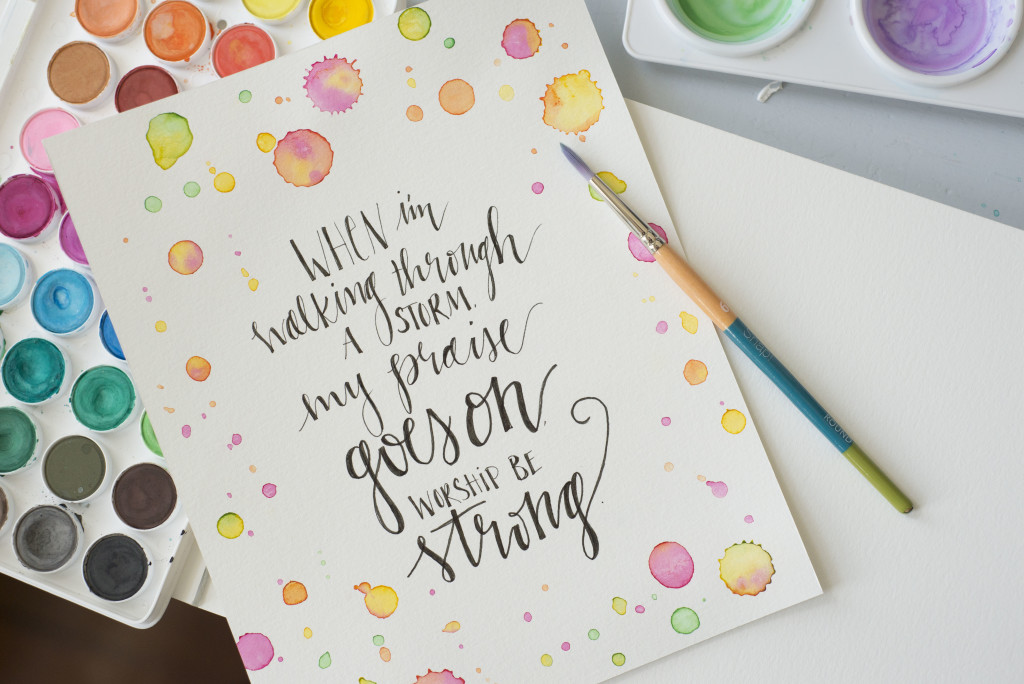 WHEN i'm
walking through
A STORM,
my praise
goes on.
WORSHIP BE
strong.
ROUND